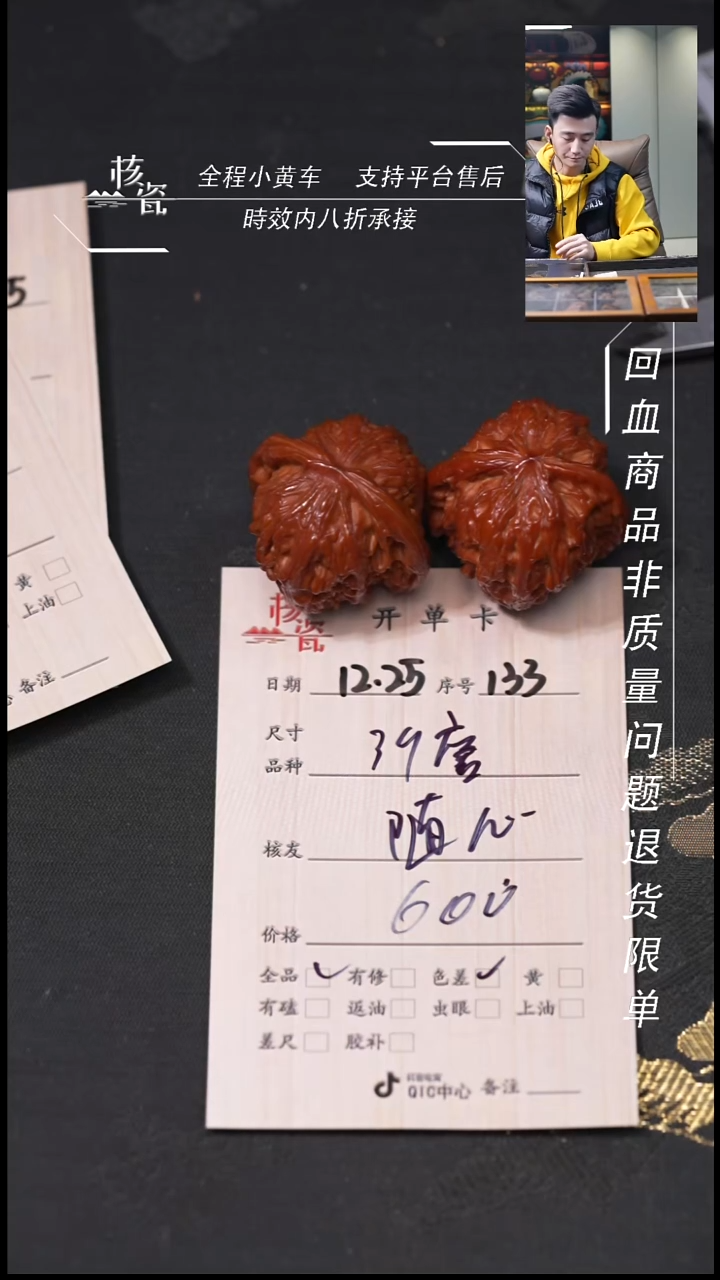 核瓷
全程小黄车 支持平台售后
時效内八折承接
回血商品非质量问题退货限单
5
黄
上油
备注
核瓷
开单卡
日期 12.25 序号 133
尺寸
品种 39唐
核发 随心
价格 600
全品 有修 色差 黄
有磕 返油 虫眼 上油
差尺 胶补
QIC中心 备注